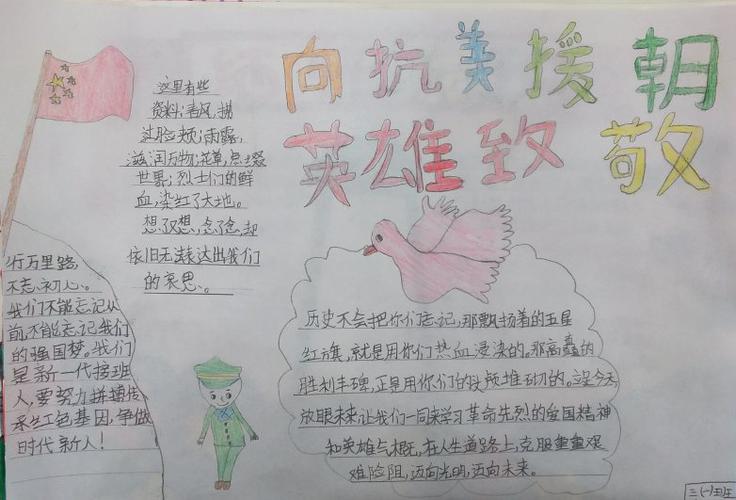 向抗美援朝
英雄致敬
这里有些
资料:春风,拂
过脸颊;雨露,
滋润万物;花草,点缀
世界;烈士们的鲜
血,染红了大地。
想了又想,念了念,却
依旧无法表达出我们
的哀思。
行万里路,
不忘初心。
我们不能忘记从
前,不能忘记我们
的强国梦。我们
是新一代接班
人,要努力拼搏传
承红色基因,争做
时代新人!
历史不会把你们忘记,那飘扬着的五星
红旗,就是用你们热血浸染的。那高矗的
胜利丰碑,正是用你们的头颅堆砌的。今天
放眼未来,让我们一同来学习革命先烈的爱国精神
和英雄气概,在人生道路上,克服重重艰
难险阻,迈向光明,迈向未来。
三(一)班